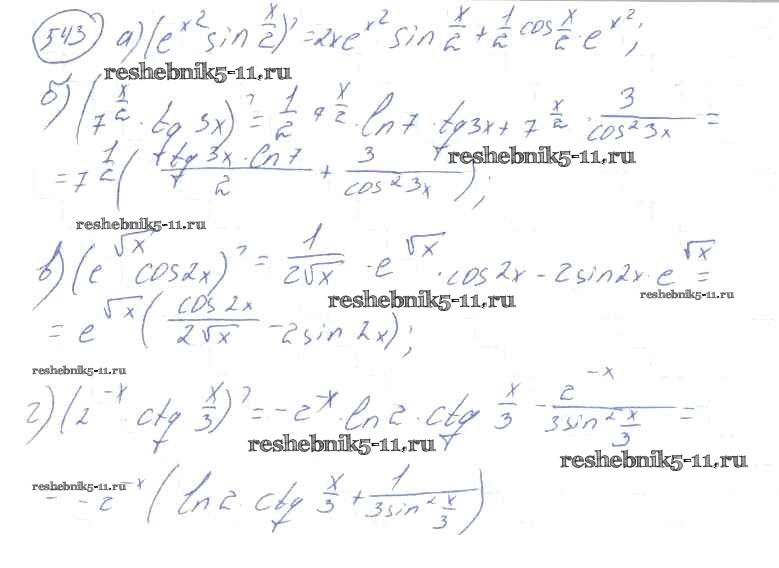 543) а) (e^{x^2} sin x/2)' = 2xe^{x^2} sin x/2 + 1/2 cos x/2 · e^{x^2};
reshebnik5-11.ru
б) (7^{x/2} · tg 3x)' = 1/2 · 7^{x/2} · ln7 · tg3x + 7^{x/2} · 3/cos²3x =
reshebnik5-11.ru
= 7^{1/2} (tg 3x · ln7/2 + 3/cos²3x);
reshebnik5-11.ru
в) (e^{√x} cos2x)' = 1/2√x · e^{√x} · cos2x - 2sin2x · e^{√x} =
reshebnik5-11.ru
reshebnik5-11.ru
= e^{√x} (cos2x/2√x - 2sin2x);
reshebnik5-11.ru
г) (2^{-x} ctg x/3)' = -2^{-x} · ln2 · ctg x/3 - 2^{-x}/3sin² x/3 =
reshebnik5-11.ru
reshebnik5-11.ru
reshebnik5-11.ru
= -2^{-x} (ln2 · ctg x/3 + 1/3sin² x/3)